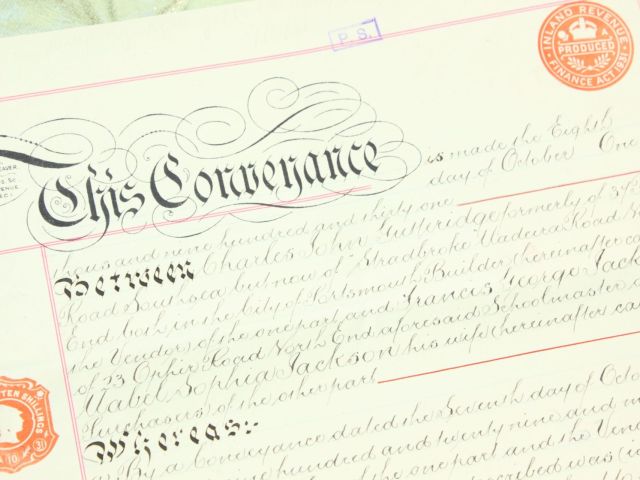 P.S.
INLAND REVENUE
PRODUCED
FINANCE ACT, 1931.
This Conveyance is made the Eighth
day of October One
thousand nine hundred and thirty one
Between Charles John Gutteridge formerly of 37
Road Southsea but now of "Stradbroke" Madeira Road N
End both in the City of Portsmouth Builder (hereinafter ca
the Vendor) of the one part and Francis George Jack
of 23 Ophir Road North End aforesaid Schoolmaster
Mabel Sophia Jackson his wife (hereinafter ca
Purchasers) of the other part
Whereas:
By a Conveyance dated the Seventh day of Octo
nine hundred and twenty nine and m
of the one part and the Ven
described was (
TEN SHILLINGS